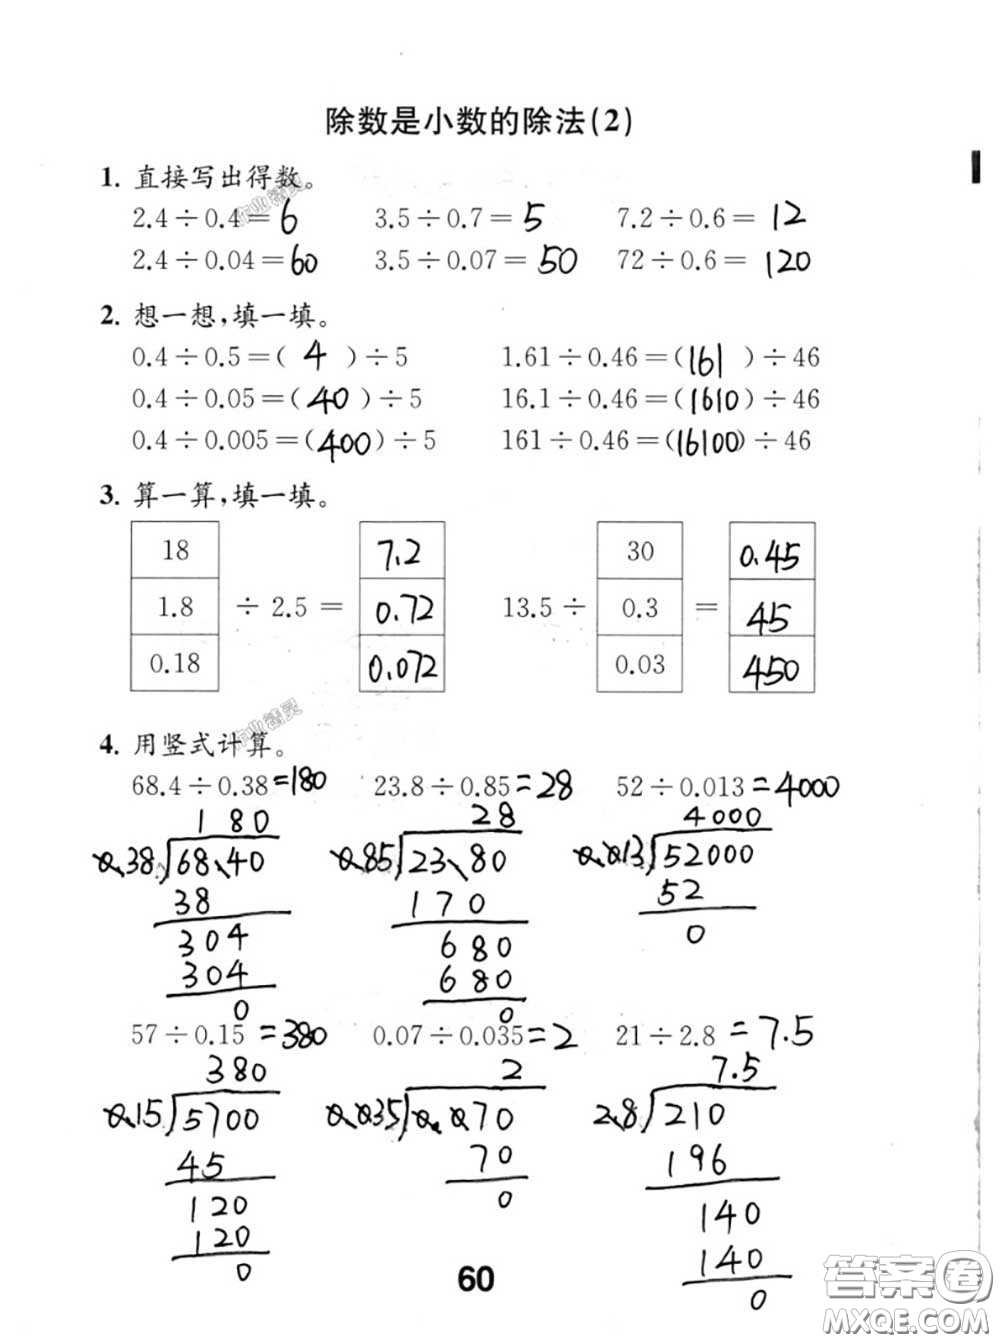 除数是小数的除法(2)
1. 直接写出得数。
2.4÷0.4=6 3.5÷0.7=5 7.2÷0.6=12
2.4÷0.04=60 3.5÷0.07=50 72÷0.6=120
2. 想一想,填一填。
0.4÷0.5=(4)÷5 1.61÷0.46=(161)÷46
0.4÷0.05=(40)÷5 16.1÷0.46=(1610)÷46
0.4÷0.005=(400)÷5 161÷0.46=(16100)÷46
3. 算一算,填一填。
18 7.2 30 0.45
1.8 ÷ 2.5 = 0.72 13.5 ÷ 0.3 = 45
0.18 0.072 0.03 450
作业精灵
4. 用竖式计算。
68.4÷0.38=180 23.8÷0.85=28 52÷0.013=4000
180 28 4000
0.38 68.40 0.85 23.80 0.013 52000
38 170 52
304 680 0
304 680
0 0
57÷0.15=380 0.07÷0.035=2 21÷2.8=7.5
380 2 7.5
0.15 5700 0.035 0.070 2.8 210
45 70 196
120 0 140
120 140
0 0
60
答案圈
MXQE.COM